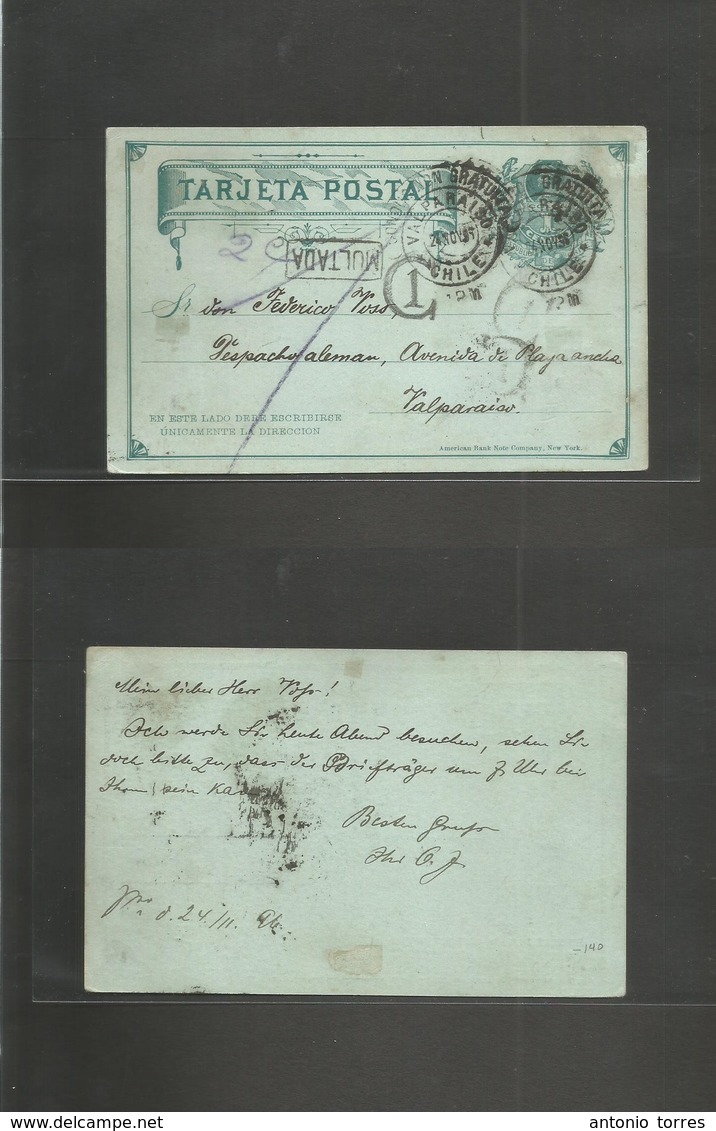 TARJETA POSTAL
CONDUCCION GRATUITA
VALPARAISO
24 NOV 96
CHILE
1 PM
GRATUITA
NOV 96
CHILE
PM
2 c
MULTADA
1
Sr don Federico Voss,
Despacho aleman, Avenida de Playa ancha
Valparaiso.
EN ESTE LADO DEBE ESCRIBIRSE
ÚNICAMENTE LA DIRECCION
American Bank Note Company, New York.
Mein lieber Herr Voss!
Ich werde Sie heute Abend besuchen, sehen Sie
doch bitte zu, dass der Briefträger um 7 Uhr bei
Ihnen sein kann.
Besten Gruss
Ihr O. J.
Vpo. d. 24/11. 96.
140
antonio torres